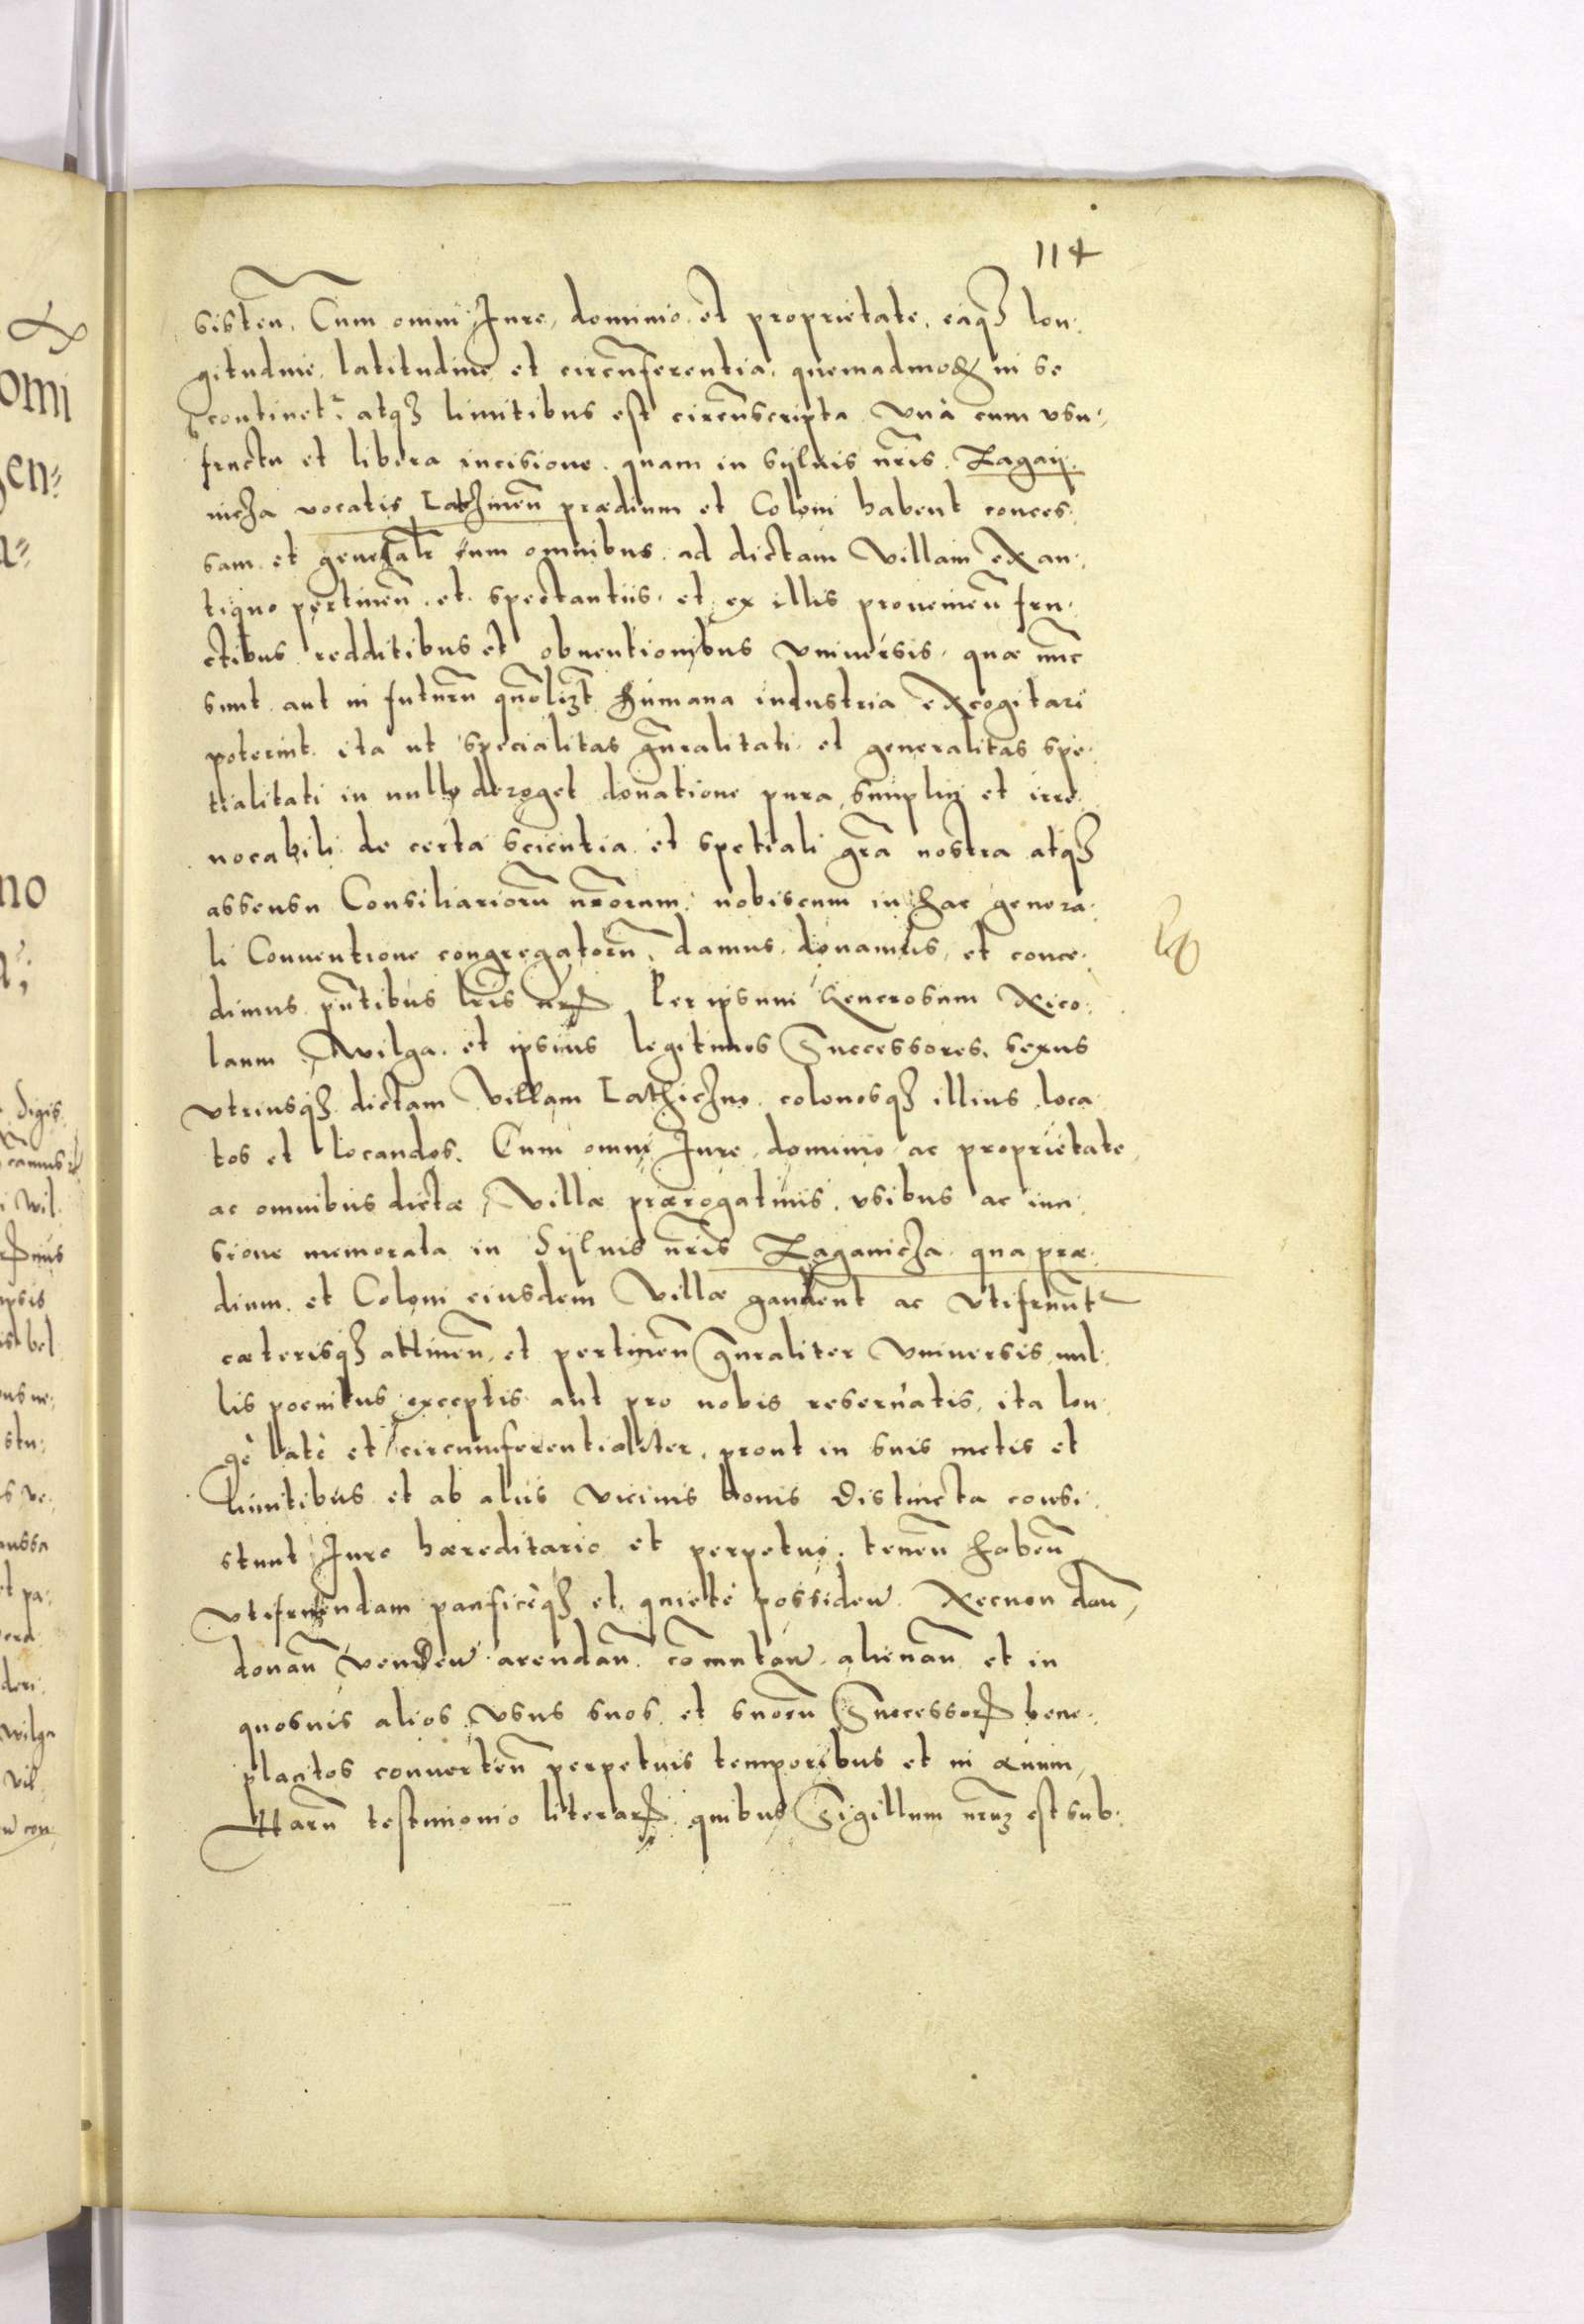 114
sisteñ. Cum omni Jure, dominio et proprietate, eaq3 lon-
gitudine, latitudine et circũferentia, quemadmod in se
continet̃, atq3 limitibus est circũscripta. Vnà cum vsu-
fructu et libera incisione quam in syluis nr̃is Zagaij-
nicza vocatis Lathzineñ prædium et Coloni habent conces-
sam et general̃r cum omnibus ad dictam Villam ex an-
tiquo pertineñ et spectantiis et ex illis proueineñ fru-
ctibus redditibus et obuentionibus vniuersis, quæ nũc
sunt aut in futurũ quõlizt humana industria excogitari
poterint ita ut specialitas gñralitati et generalitas spe-
tialitati in nullo deroget donatione pura, simplici et irre-
uocabili de certa scientia et spetiali grã nostra atq3
assensu Consiliariorũ nr̃orum nobiscum in hac genera-
li Conuentione congregatorũ, damus donamus, et conce-
dimus pñtibus lr̃is nr̃ Per ipsum Generosum Nico-
laum Wilga et ipsius legitimos Successores, sexus
vtriusq3 dictam Villam Lathziczno colonosq3 illius loca-
tos et locandos. Cum omni Jure dominio ac proprietate,
ac omnibus dictæ Villæ prærogatiuis, vsibus ac inci-
sione memorata in Syluis nr̃is Zaganicza qua præ-
dium et Coloni eiusdem Villæ gaudent ac vtifruunt̃
cæterisq3 attineñ et pertineñ gñraliter vniuersis nul-
lis poenitus exceptis aut pro nobis reseruatis, ita lon-
gè latè et circumferentialiter, prout in suis metis et
limitibus et ab aliis vicinis bonis distincta consi-
stunt Jure hæreditario et perpetuo teneñ habeñ
vtifruendam pacificèq3 et quietè possideñ Necnon dañ,
donañ vendeñ arendañ cõmutañ alienañ et in
quosuis alios vsus suos et suorũ Successor bene-
placitos conuerteñ perpetuis temporibus et in æuum,
Harũ testimonio literar quibus Sigillum nr̃u3 est sub-